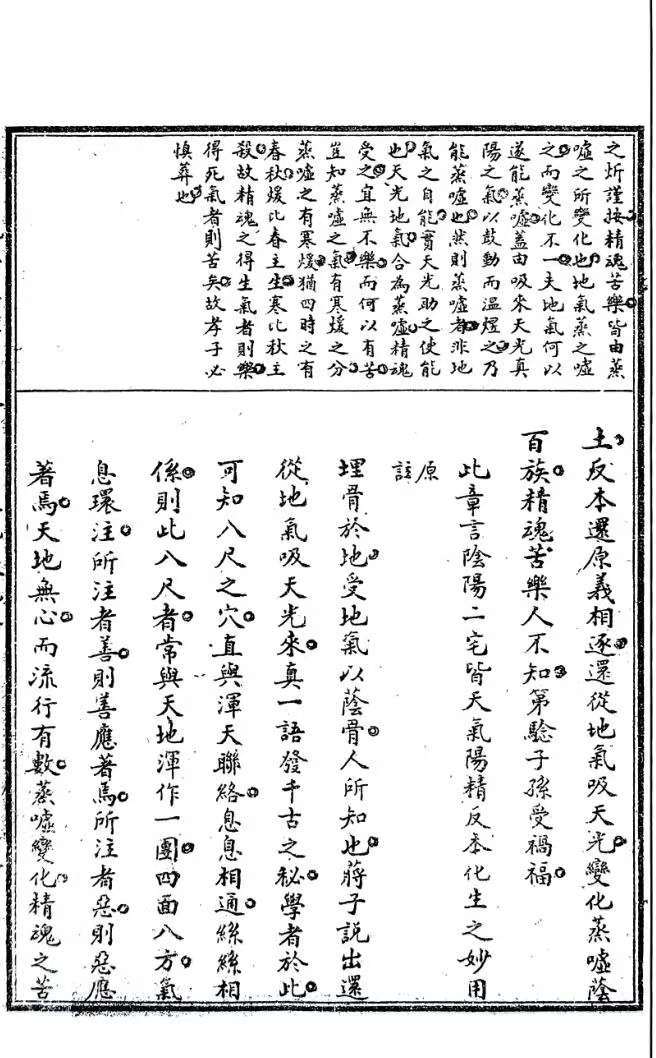 之炘謹按精魂苦樂皆由蒸
噓之所變化也地氣蒸之噓
之而變化不一夫地氣何以
遂能蒸噓蓋由吸來天光真
陽之氣以鼓動而溫煖之乃
能蒸噓也然則蒸噓者非地
氣之自能實天光助之使能
也天光地氣合為蒸噓精魂
受之宜無不樂而何以有苦
豈知蒸噓之氣有寒煖之分
蒸噓之有寒煖猶四時之有
春秋煖比春主生寒比秋主
殺故精魂之得生氣者則樂
得死氣者則苦矣故孝子必
慎葬也
土反本還原義相逐還從地氣吸天光變化蒸噓蔭
百族精魂苦樂人不知第驗子孫受禍福
此章言陰陽二宅皆天氣陽精反本化生之妙用
原註
埋骨於地受地氣以蔭骨人所知也蔣子說出還
從地氣吸天光來真一語發千古之秘學者於此
可知八尺之穴直與渾天聯絡息息相通絲絲相
係則此八尺者常與天地渾作一團四面八方氣
息環注所注者善則善應著焉所注者惡則惡應
著焉天地無心而流行有數蒸噓變化精魂之苦